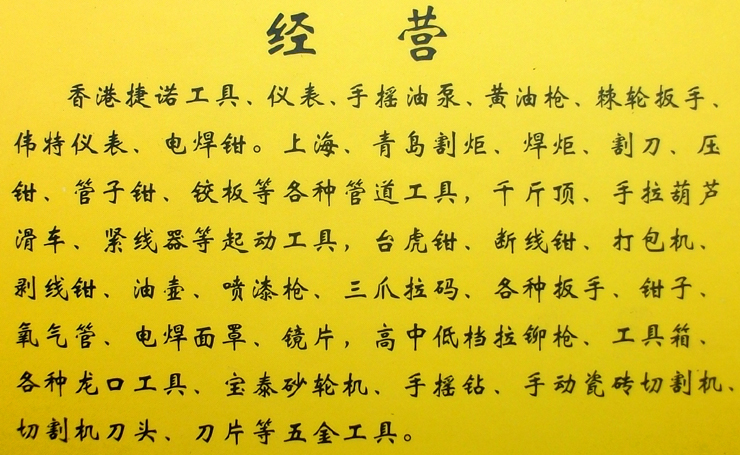 经 营
香港捷诺工具、仪表、手摇油泵、黄油枪、棘轮扳手、
伟特仪表、电焊钳。上海、青岛割炬、焊炬、割刀、压
钳、管子钳、铰板等各种管道工具，千斤顶、手拉葫芦
滑车、紧线器等起动工具，台虎钳、断线钳、打包机、
剥线钳、油壶、喷漆枪、三爪拉码、各种扳手、钳子、
氧气管、电焊面罩、镜片，高中低档拉铆枪、工具箱、
各种龙口工具、宝泰砂轮机、手摇钻、手动瓷砖切割机、
切割机刀头、刀片等五金工具。